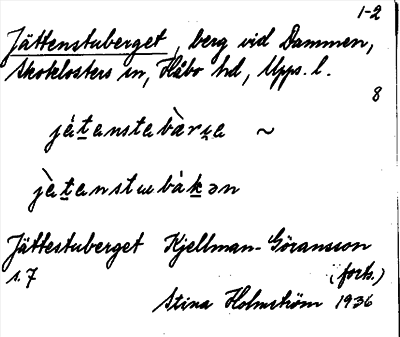 1-2
Jättenstuberget, berg vid Dammen,
Skoklosters sn, Håbo hd, Upps. l.
8
jä̀t̠anstabàrɛ̠a ~
jä̀t̠anstɯbák̠ən
Jättestuberget Kjellman-Göransson
s. 7 (forts.)
Stina Holmström 1936